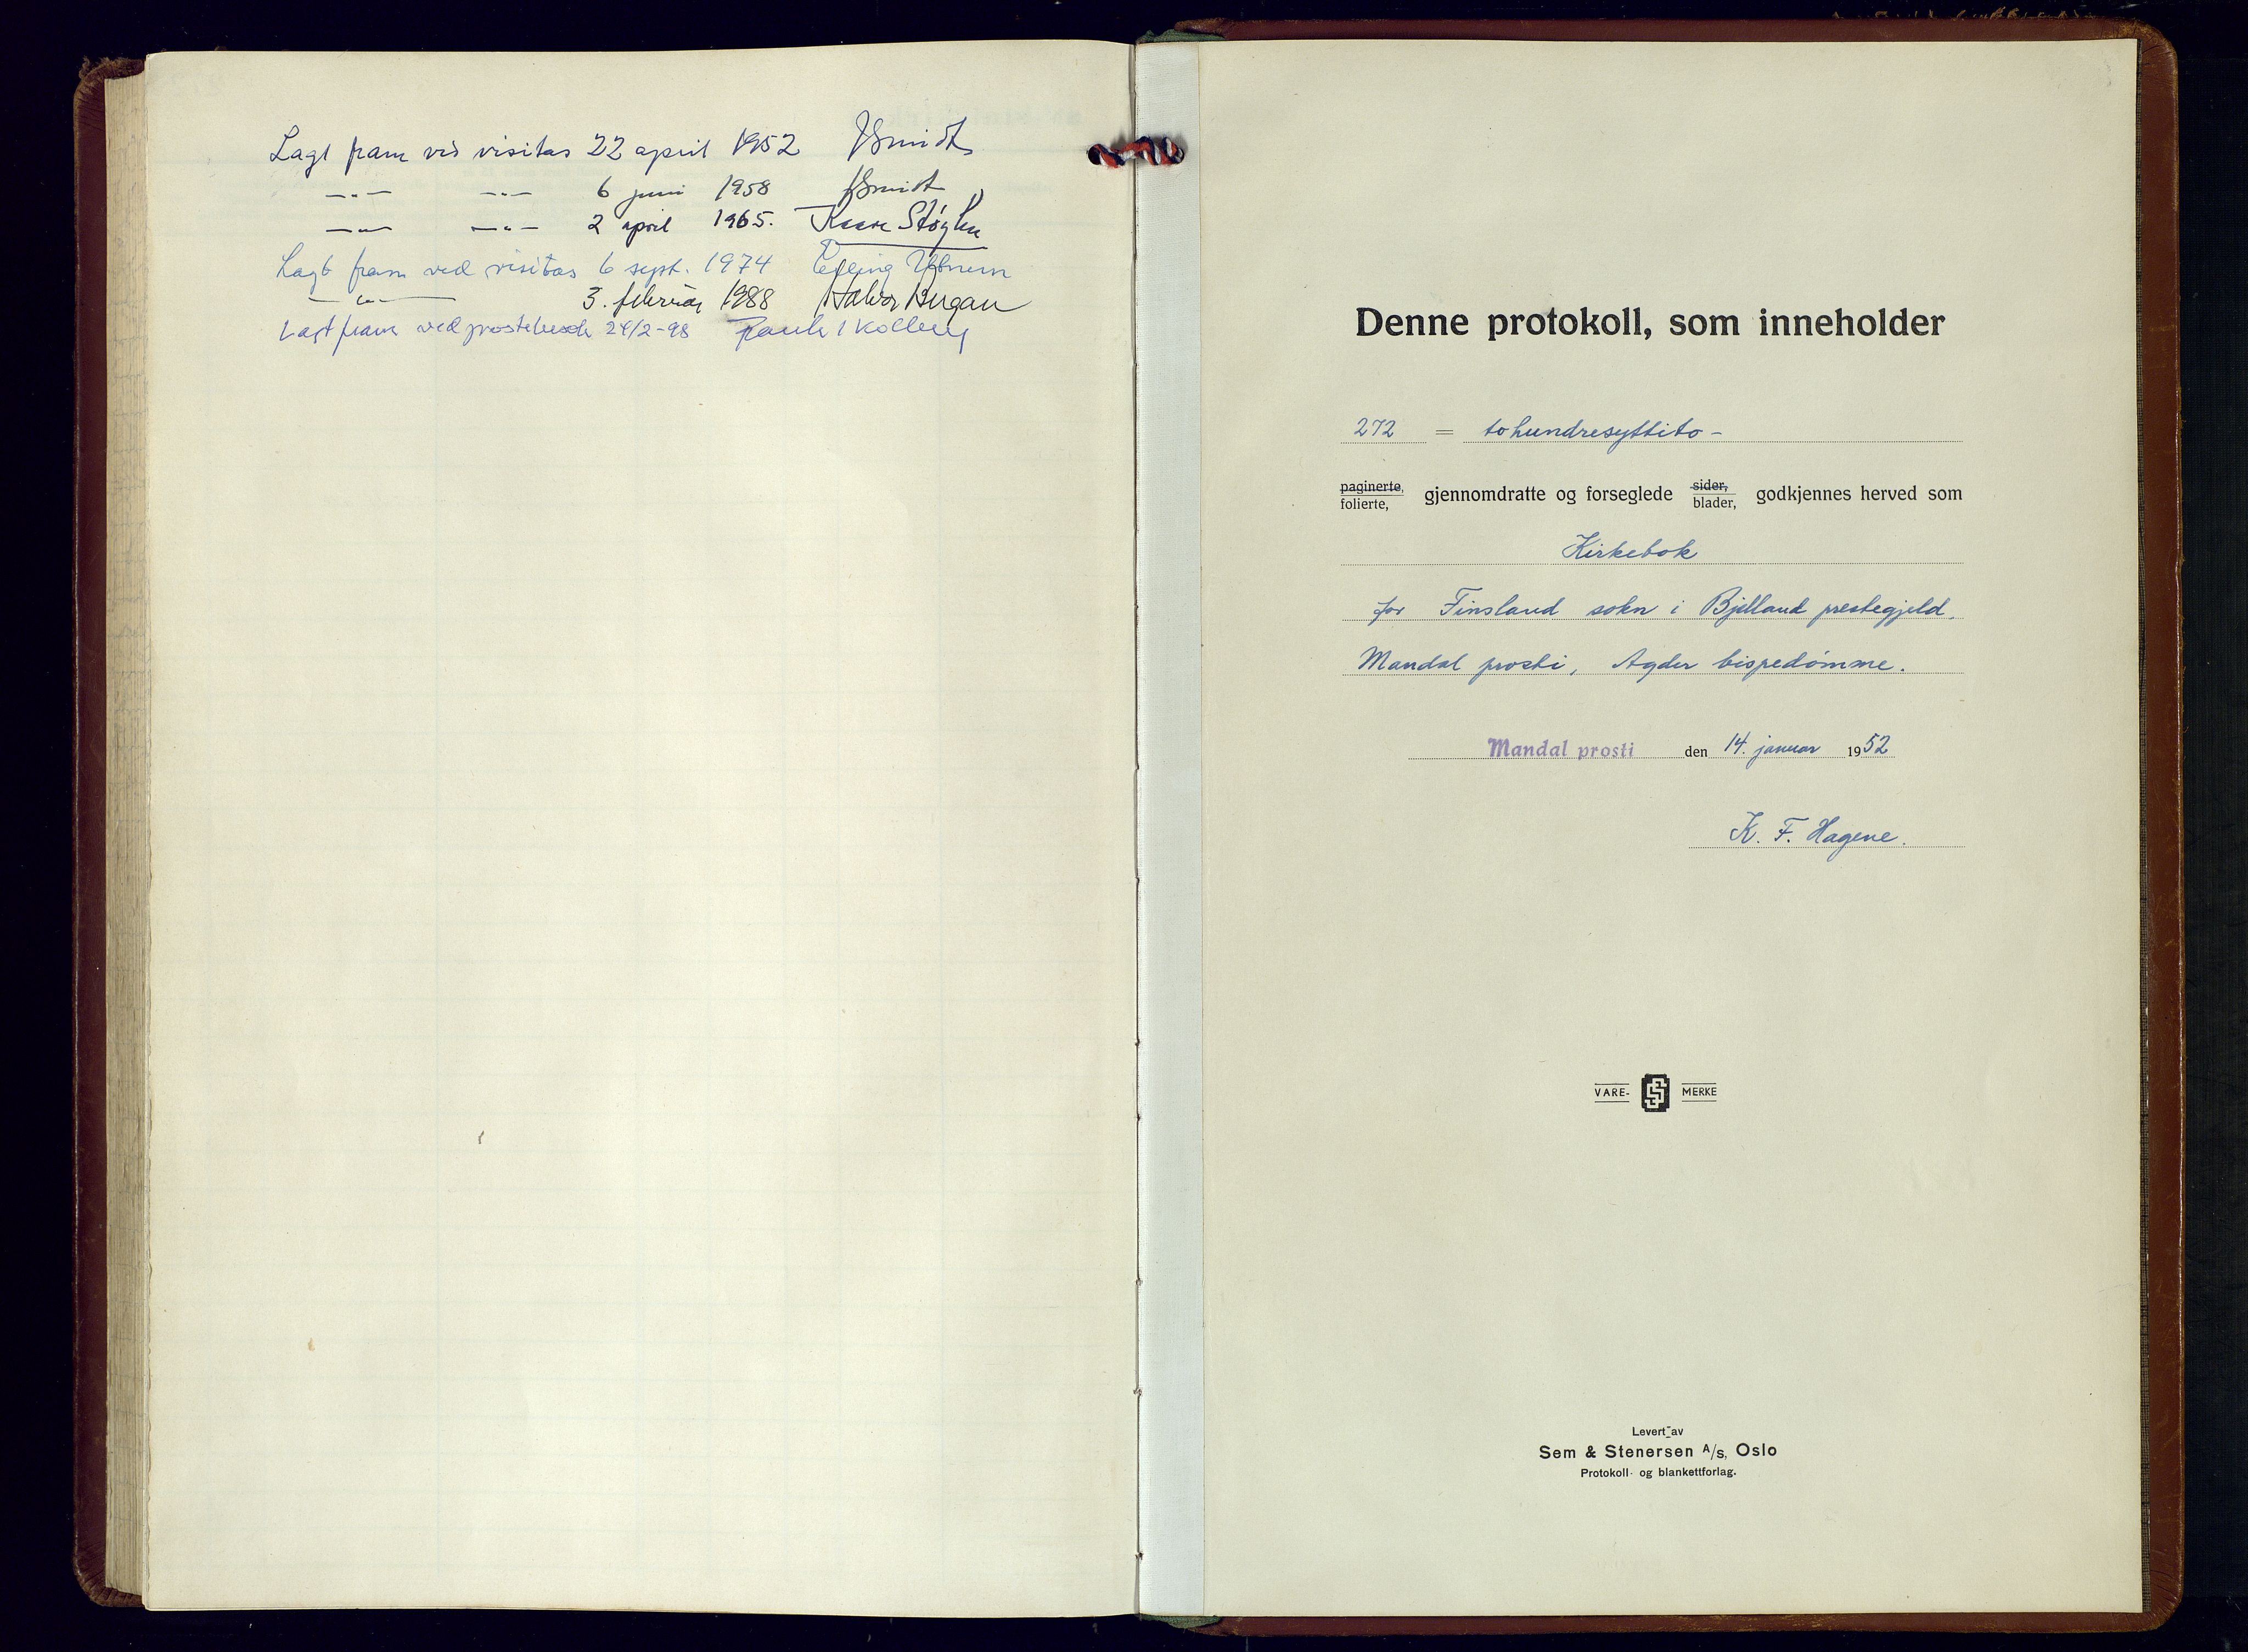 Lagt fram ved visitas 22 april 1952 JSmidt
—"— —"— 6 juni 1958 JSmidt
—"— —"— 2 april 1965. Kaare Støylen
Lagt fram ved visitas 6 sept. 1974 Erling Utnem
—"— 3. februar 1988 Halvor Bergan
Lagt fram ved prostebesøk 24/2-98
Denne protokoll, som inneholder
272 = tohundresyttito -
paginerte, folierte, gjennomdratte og forseglede sider, blader, godkjennes herved som
Kirkebok
for Finsland sokn i Bjelland prestegjeld,
Mandal prosti, Agder bispedømme.
Mandal prosti den 14. januar 1952
K. F. Hagene.
VARE- MERKE
Levert av
Sem & Stenersen A/s, Oslo
Protokoll- og blankettforlag.